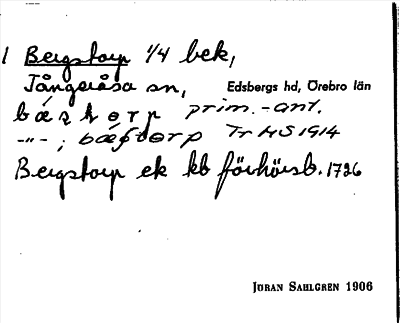 1 Bergstorp 1/4 bek,
Tångeråsa sn, Edsbergs hd, Örebro län
prim.-ant.
-"-; Tr HS 1914
Bergstorp ek kb förhörsb. 1726
JÖRAN SAHLGREN 1906